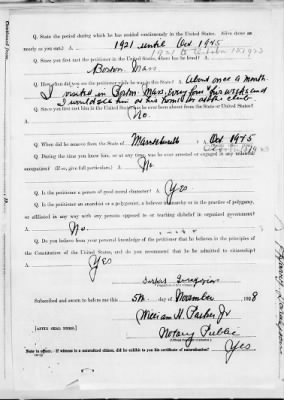 Q. State the period during which he has resided continuously in the United States. Give dates as
nearly as you can? A. 1921 until Oct 1945
Q. Since you first met the petitioner in the United States, where has he lived? A.
Boston Mass
Q. How often did you see the petitioner while he was in this State? A. About once a month.
I visited in Boston, Mass, every few weeks and
I would see him at his home or at the club
Q. Since you first met him in the United States he was ever been absent from the State or United States?
No.
Q. When did he remove from the State of Massachusetts A. Oct 1945
Q. During the time you knew him, or at any time, was he ever arrested or engaged in any unlawful
occupation? (If so, give full particulars.) A. No
Q. Is the petitioner a person of good moral character? A. Yes
Q. Is the petitioner an anarchist or a polygamist, a believer in anarchy or in the practice of polygamy,
or affiliated in any way with any persons opposed to or teaching disbelief in organized government?
A. No.
Q. Do you believe from your personal knowledge of the petitioner that he believes in the principles
of the Constitution of the United States, and do you recommend that he be admitted to citizenship?
A. Yes
Subscribed and sworn to before me this 5th day of November, 1928
William H. Parker Jr
[AFFIX SEAL HERE]
Notary Public
Note to officer: If witness is a naturalized citizen, did he exhibit to you his certificate of naturalization? Yes